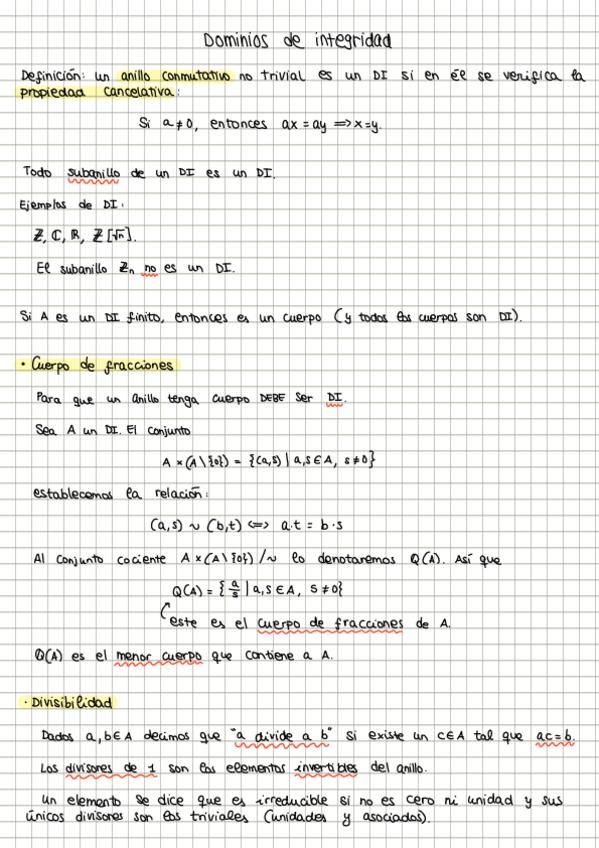 Dominios de integridad
Definición: un anillo conmutativo no trivial es un DI si en él se verifica la
propiedad cancelativa:
Si a ≠ 0, entonces ax = ay ⟹ x = y.
Todo subanillo de un DI es un DI.
Ejemplos de DI:
ℤ, ℂ, ℝ, ℤ[√n].
El subanillo ℤₙ no es un DI.
Si A es un DI finito, entonces es un cuerpo (y todos los cuerpos son DI).
· Cuerpo de fracciones
Para que un anillo tenga cuerpo DEBE ser DI.
Sea A un DI. El conjunto
A × (A \ {0}) = {(a,s) | a,s ∈ A, s ≠ 0}
establecemos la relación:
(a,s) ~ (b,t) ⟺ a·t = b·s
Al conjunto cociente A × (A \ {0}) / ~ lo denotaremos Q(A). Así que
Q(A) = { a/s | a,s ∈ A, s ≠ 0}
este es el cuerpo de fracciones de A.
Q(A) es el menor cuerpo que contiene a A.
· Divisibilidad
Dados a, b ∈ A decimos que "a divide a b" si existe un c ∈ A tal que ac = b.
Los divisores de 1 son los elementos invertibles del anillo.
Un elemento se dice que es irreducible si no es cero ni unidad y sus
únicos divisores son los triviales (unidades y asociados).